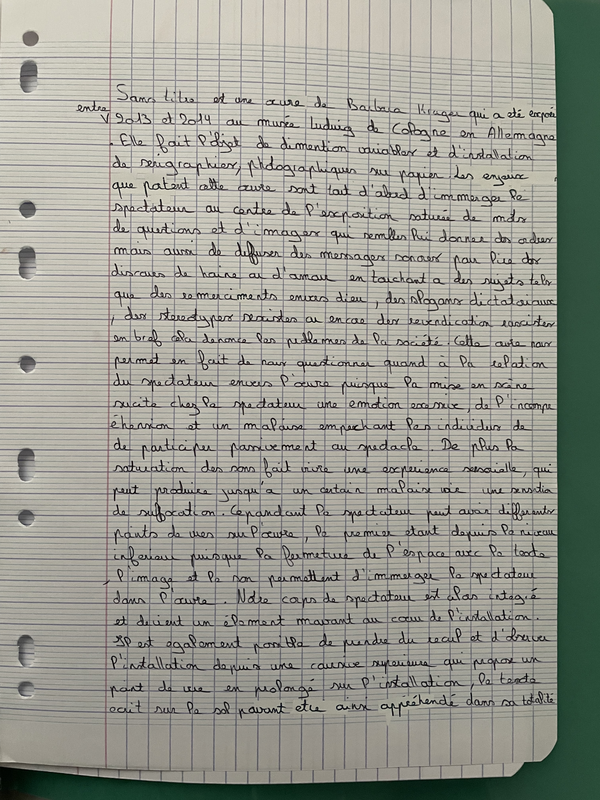 Sans titre est une œuvre de Barbara Kruger qui a été exposée
entre 2013 et 2014 au musée Ludwig de Cologne en Allemagne
. Elle fait l'objet de dimention variables et d'installation
de serigraphies, photographiques sur papier. Les enjeux
que portent cette œuvre sont tout d'abord d'immerger le
spectateur au centre de l'exposition saturée de mots
de questions et d'images qui semblent lui donner des ordres
mais aussi de diffuser des messages sonores pour lire des
discours de haine ou d'amour en touchant a des sujets tels
que des remerciments envers dieu, des slogans dictatoriaux
, des stereotypes sexistes ou encore des revendication racistes
en bref cela denonce les problemes de la société. Cette œuvre nous
permet en fait de nous questionner quand à la relation
du spectateur envers l'œuvre puisque la mise en scène
sucite chez le spectateur une emotion excessive, de l'incompr
éhension et un malaise empechant les individus de
de participer passivement au spectacle. De plus la
saturation des sons fait vivre une experience sensorielle, qui
peut produire jusqu'a un certain malaise voir une sensation
de suffocation. Cependant le spectateur peut avoir differents
points de vues sur l'œuvre, le premier etant depuis le niveau
inferieur puisque la fermeture de l'espace avec le texte
, l'image et le son permettent d'immerger le spectateur
dans l'œuvre. Notre corps de spectateur est alors integré
et devient un élement mouvant au cœur de l'installation.
Il est egalement possible de prendre du recul et d'observer
l'installation depuis une coursive superieure qui propose un
point de vue en prolongé sur l'installation, le texte
ecrit sur le sol pouvant etre ainsi appréhendé dans sa totalité